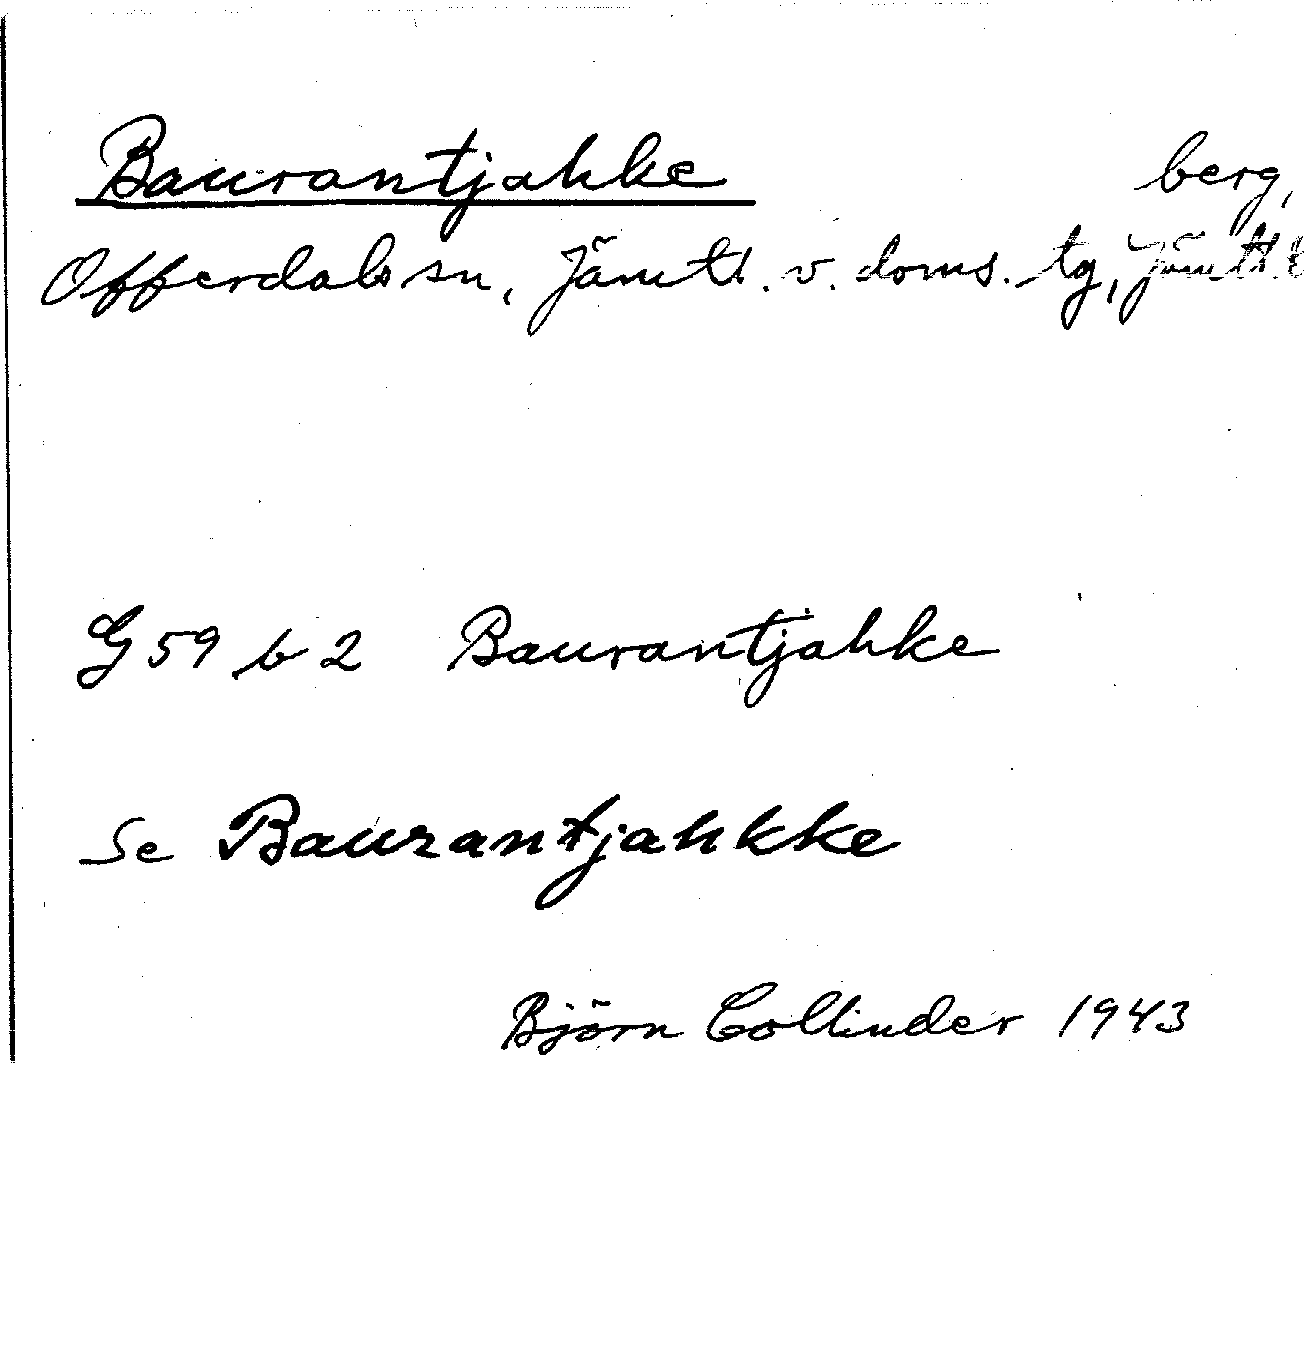 Baurantjahke berg,
Offerdals sn, Jämtl. v. doms. tg, Jämtl.
G 59 b 2 Baurantjahke
Se Baurantjahkke
Björn Collinder 1943